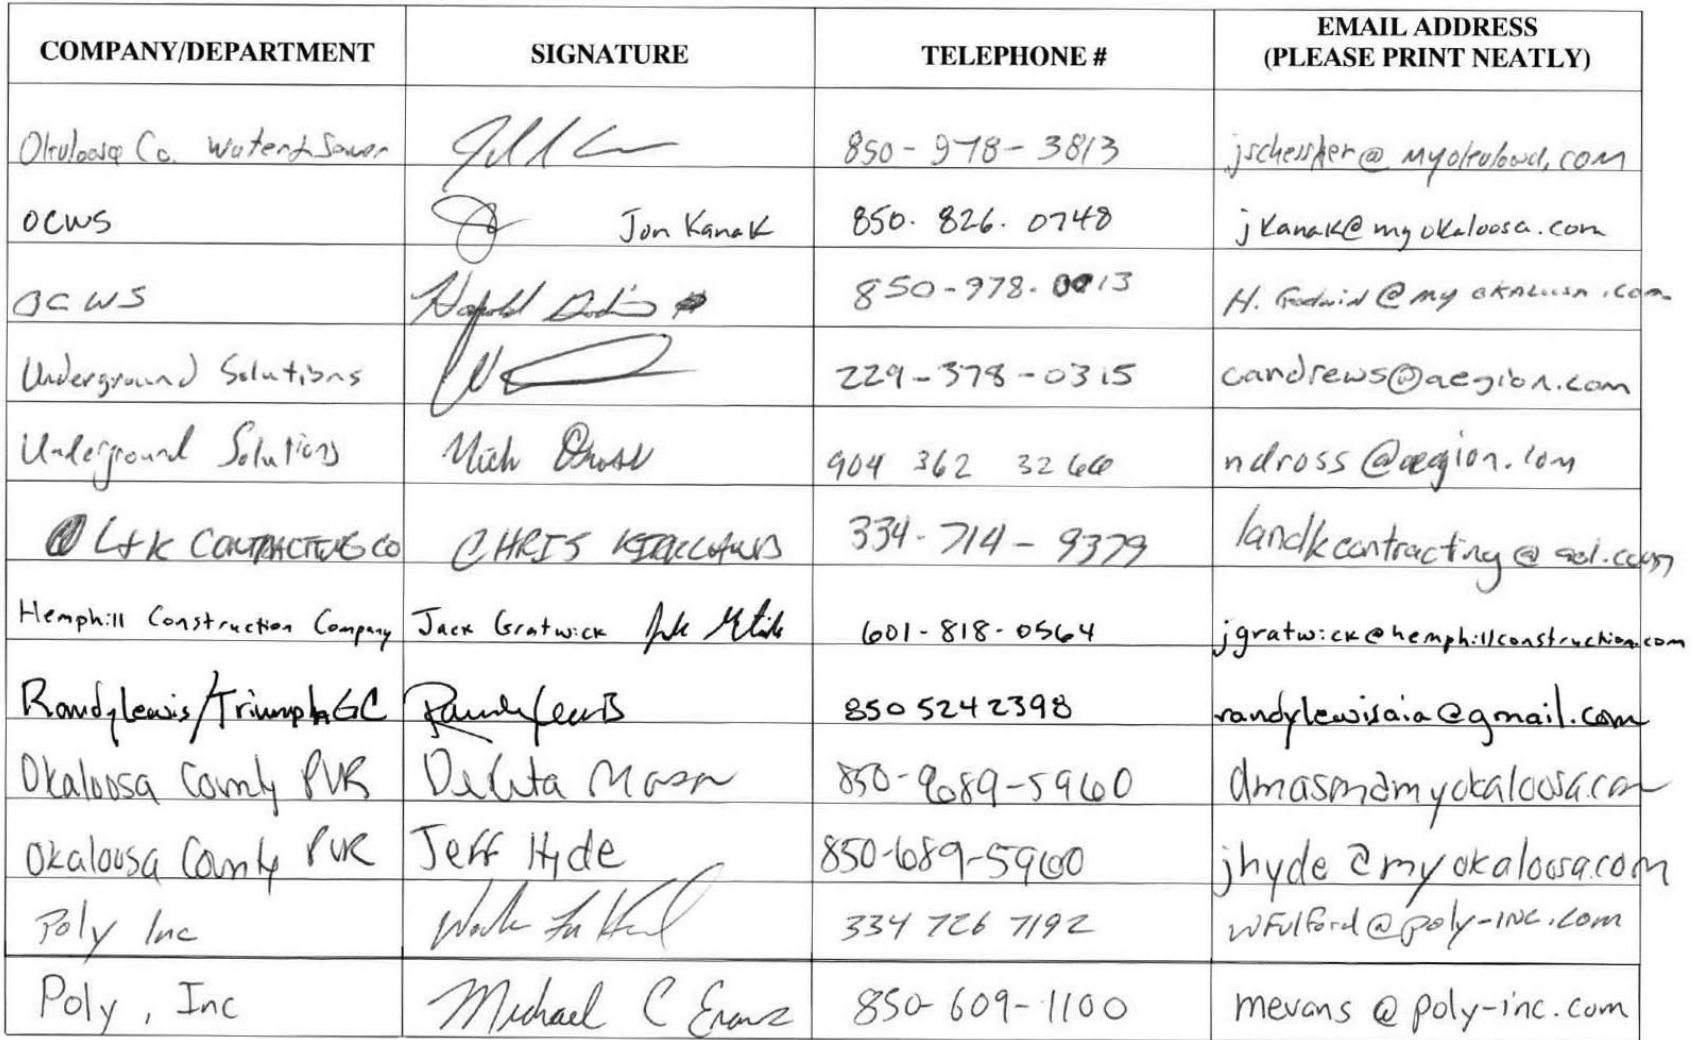 COMPANY/DEPARTMENT SIGNATURE TELEPHONE # EMAIL ADDRESS
(PLEASE PRINT NEATLY)
Okaloosa Co. Water & Sewer 850-978-3813
OCWS Jon Kanak 850.826.0748 jkanak@myokaloosa.com
OCWS Harold 850-978. H. Godwin@myokaloosa.com
Underground Solutions 229-378-0315 candrews@aegion.com
Underground Solutions Nick Dross 904 362 3266 ndross@aegion.com
L&K CONTRACTING CO CHRIS KIRKLAND 334-714-9379 landkcontracting@aol.com
Hemphill Construction Company Jack Gratwick 601-818-0564 jgratwick@hemphillconstruction.com
Randy Lewis/Triumph GC Randy Lewis 850 5242398 randylewisaia@gmail.com
Okaloosa County PUR DeRita Mason 850-9689-5960 dmason@myokaloosa.com
Okaloosa County PUR Jeff Hyde 850-689-5960 jhyde@myokaloosa.com
Poly Inc 334 726 7192 WFulford@poly-inc.com
Poly, Inc Michael C Evans 850-609-1100 mevans@poly-inc.com